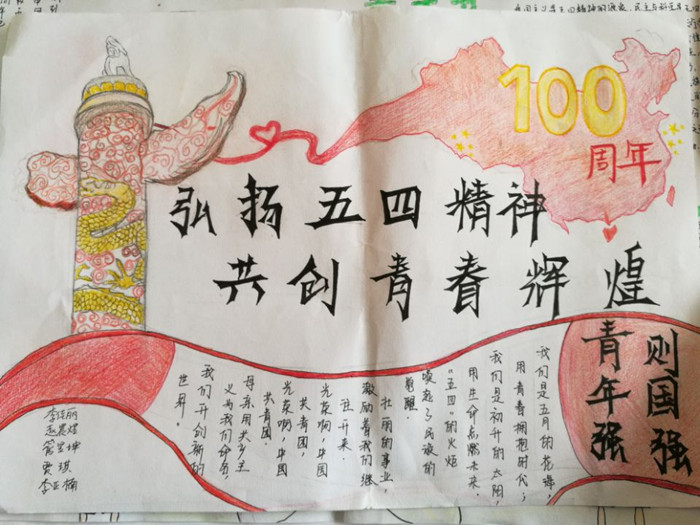 100
周年
弘扬五四精神
共创青春辉煌
青年强
则国强
我们是五月的花海,
用青春拥抱时代;
我们是初升的太阳,
用生命点燃未来.
“五四”的火炬
唤起了民族的
觉醒.
壮丽的事业,
激励着我们继
往开来.
光荣啊,中国
共青团,
光荣啊,中国
共青团,
母亲用共产主
义为我们命名,
我们开创新的
世界.
贾琪